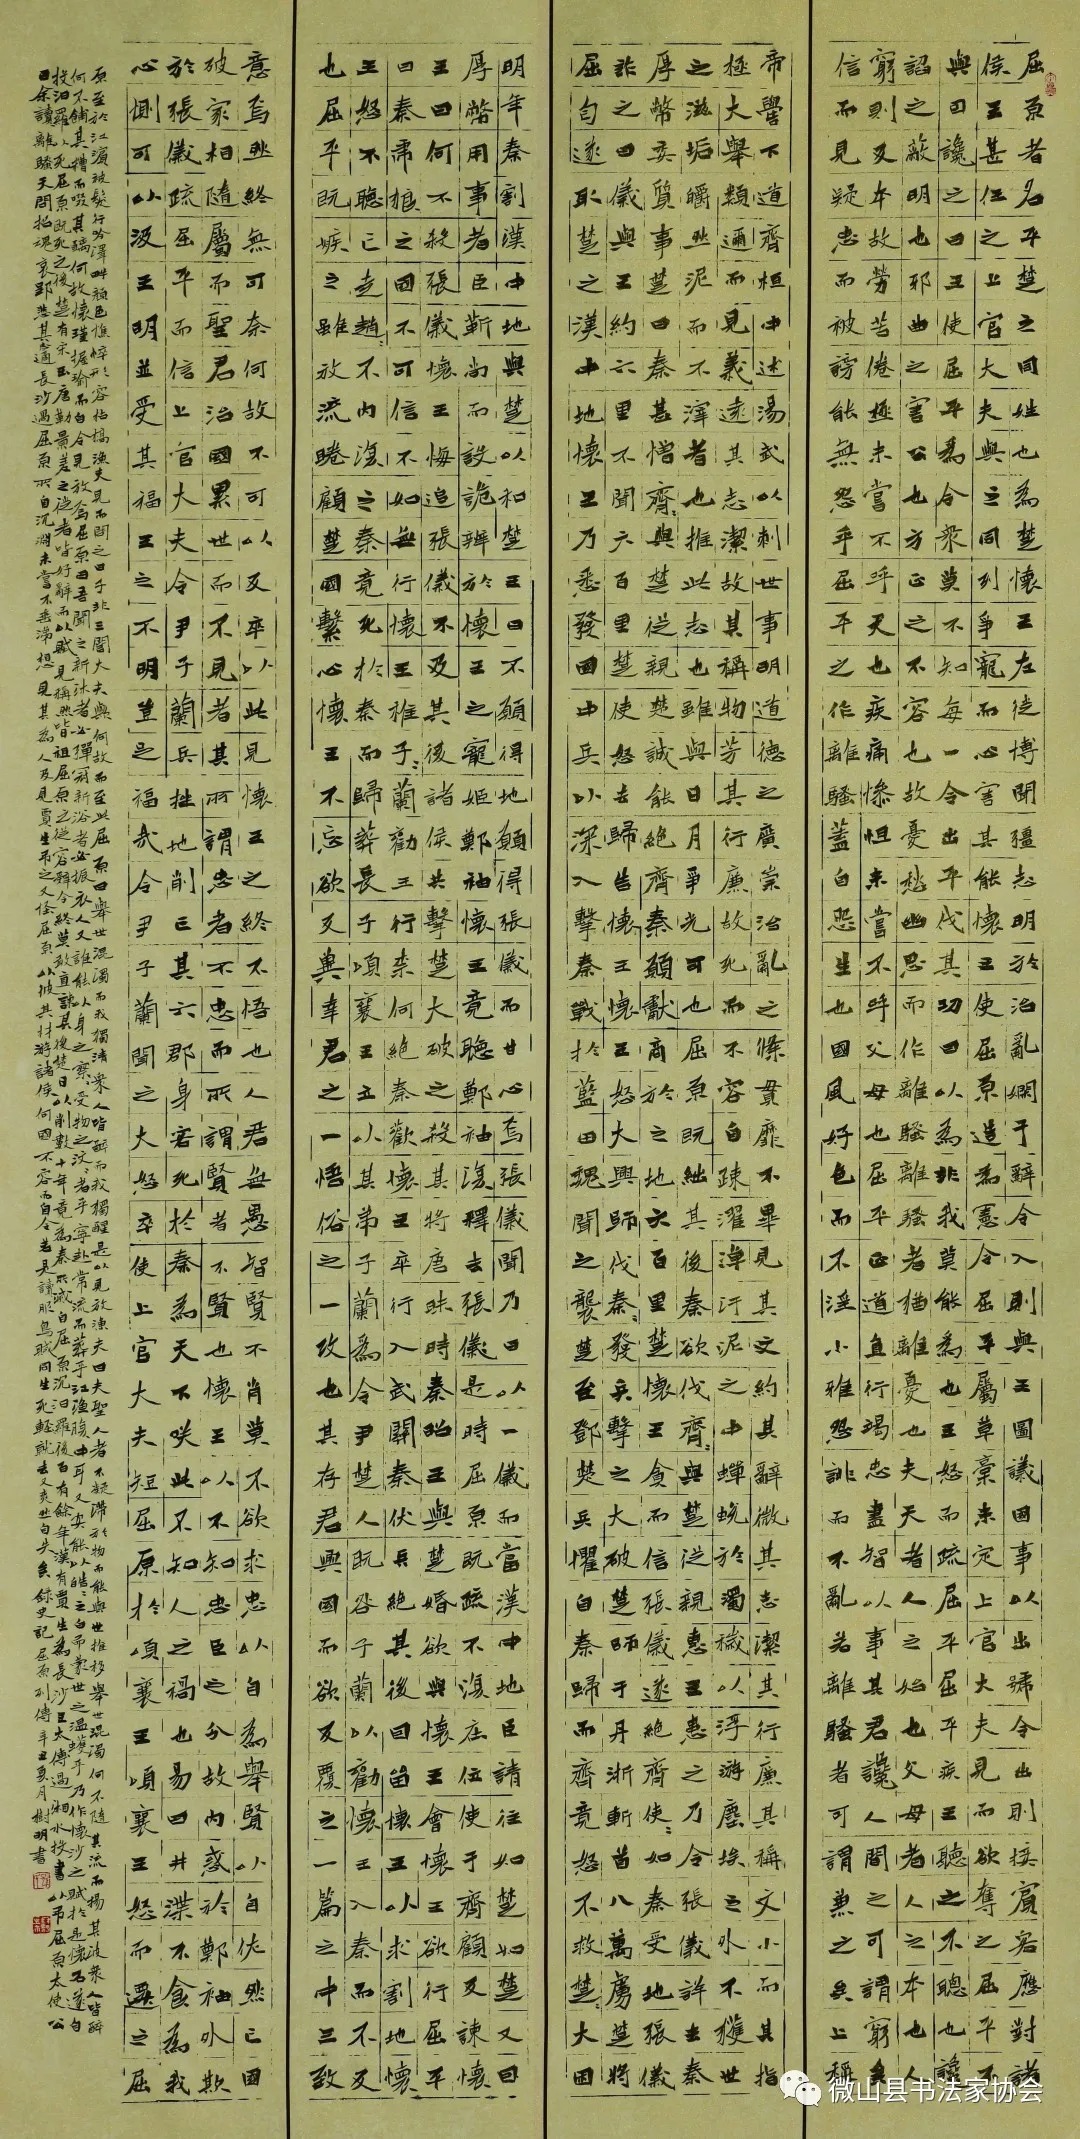 屈原者名平楚之同姓也為楚懷王左徒博聞彊志明於治亂嫻于辭令入則與王圖議國事以出號令出則接賓客應對諸
侯王甚任之上官大夫與之同列爭寵而心害其能懷王使屈原造為憲令屈平屬草稾未定上官大夫見而欲奪之屈平不
與曰讒之曰王使屈平為令衆莫不知每一令出平伐其功曰以為非我莫能為也王怒而疏屈平屈平疾王聽之不聰也讒
諂之蔽明也邪曲之害公也方正之不容也故憂愁幽思而作離騷離騷者猶離憂也夫天者人之始也父母者人之本也人
窮則反本故勞苦倦極未嘗不呼天也疾痛慘怛未嘗不呼父母也屈平正道直行竭忠盡智以事其君讒人間之可謂窮矣
信而見疑忠而被謗能無怨乎屈平之作離騷蓋自怨生也國風好色而不淫小雅怨誹而不亂若離騷者可謂兼之矣上稱
帝嚳下道齊桓中述湯武以刺世事明道德之廣崇治亂之條貫靡不畢見其文約其辭微其志潔其行廉其稱文小而其指
極大舉類邇而見義遠其志潔故其稱物芳其行廉故死而不容自疎濯淖汙泥之中蟬蛻於濁穢以浮游塵埃之外不獲世
之滋垢皭然泥而不滓者也推此志也雖與日月爭光可也屈原既絀其後秦欲伐齊齊與楚從親惠王患之乃令張儀詳去秦
厚幣委質事楚曰秦甚憎齊齊與楚從親楚誠能絕齊秦願獻商於之地六百里楚懷王貪而信張儀遂絕齊使使如秦受地張儀
詐之曰儀與王約六里不聞六百里楚使怒去歸告懷王懷王怒大興師伐秦秦發兵擊之大破楚師于丹淅斬首八萬虜楚將
屈匄遂取楚之漢中地懷王乃悉發國中兵以深入擊秦戰於藍田魏聞之襲楚至鄧楚兵懼自秦歸而齊竟怒不救楚楚大困
明年秦割漢中地與楚以和楚王曰不願得地願得張儀而甘心焉張儀聞乃曰以一儀而當漢中地臣請往如楚如楚又因
厚幣用事者臣靳尚而設詭辯於懷王之寵姬鄭袖懷王竟聽鄭袖復釋去張儀是時屈原既疏不復在位使于齊顧反諫懷
王曰何不殺張儀懷王悔追張儀不及其後諸侯共擊楚大破之殺其將唐眛時秦昭王與楚婚欲與懷王會懷王欲行屈平
曰秦虎狼之國不可信不如無行懷王稚子子蘭勸王行奈何絕秦歡懷王卒行入武關秦伏兵絕其後因留懷王以求割地懷
王怒不聽亡走趙趙不內復之秦竟死於秦而歸葬長子頃襄王立以其弟子蘭為令尹楚人既咎子蘭以勸懷王入秦而不反
也屈平既嫉之雖放流睠顧楚國繫心懷王不忘欲反冀幸君之一悟俗之一改也其存君興國而欲反覆之一篇之中三致
意焉然終無可奈何故不可以反卒以此見懷王之終不悟也人君無愚智賢不肖莫不欲求忠以自為舉賢以自佐然亡國
破家相隨屬而聖君治國累世而不見者其所謂忠者不忠而所謂賢者不賢也懷王以不知忠臣之分故內惑於鄭袖外欺
於張儀疏屈平而信上官大夫令尹子蘭兵挫地削亡其六郡身客死於秦為天下咲此不知人之禍也易曰井渫不食為我
心惻可以汲王明並受其福王之不明豈足福哉令尹子蘭聞之大怒卒使上官大夫短屈原於頃襄王頃襄王怒而遷之屈
原至於江濱被髮行吟澤畔顏色憔悴形容枯槁漁父見而問之曰子非三閭大夫與何故而至此屈原曰舉世混濁而我獨清衆人皆醉而我獨醒是以見放漁父曰夫聖人者不凝滯於物而能與世推移舉世混濁何不隨其流而揚其波衆人皆醉
何不餔其糟而啜其醨何故懷瑾握瑜而自令見放為屈原曰吾聞之新沐者必彈冠新浴者必振衣人又誰能以身之察察受物之汶汶者乎寧赴常流而葬乎江魚腹中耳又安能以皓皓之白而蒙世之溫蠖乎乃作懷沙之賦於是懷石遂自
投汨羅以死屈原既死之後楚有宋玉唐勒景差之徒者皆好辭而以賦見稱然皆祖屈原之從容辭令終莫敢直諫其後楚日以削數十年竟為秦所滅自屈原沉汨羅後百有餘年漢有賈生為長沙王太傅過湘水投書以弔屈原太史公
曰余讀離騷天問招魂哀郢悲其志適長沙過屈原所自沉淵未嘗不垂涕想見其為人及見賈生弔之又怪屈原以彼其材游諸侯何國不容而自令若是讀服鳥賦同生死輕就去又爽然自失矣錄史記屈原列傳辛丑夏月樹明書
微山县书法家协会